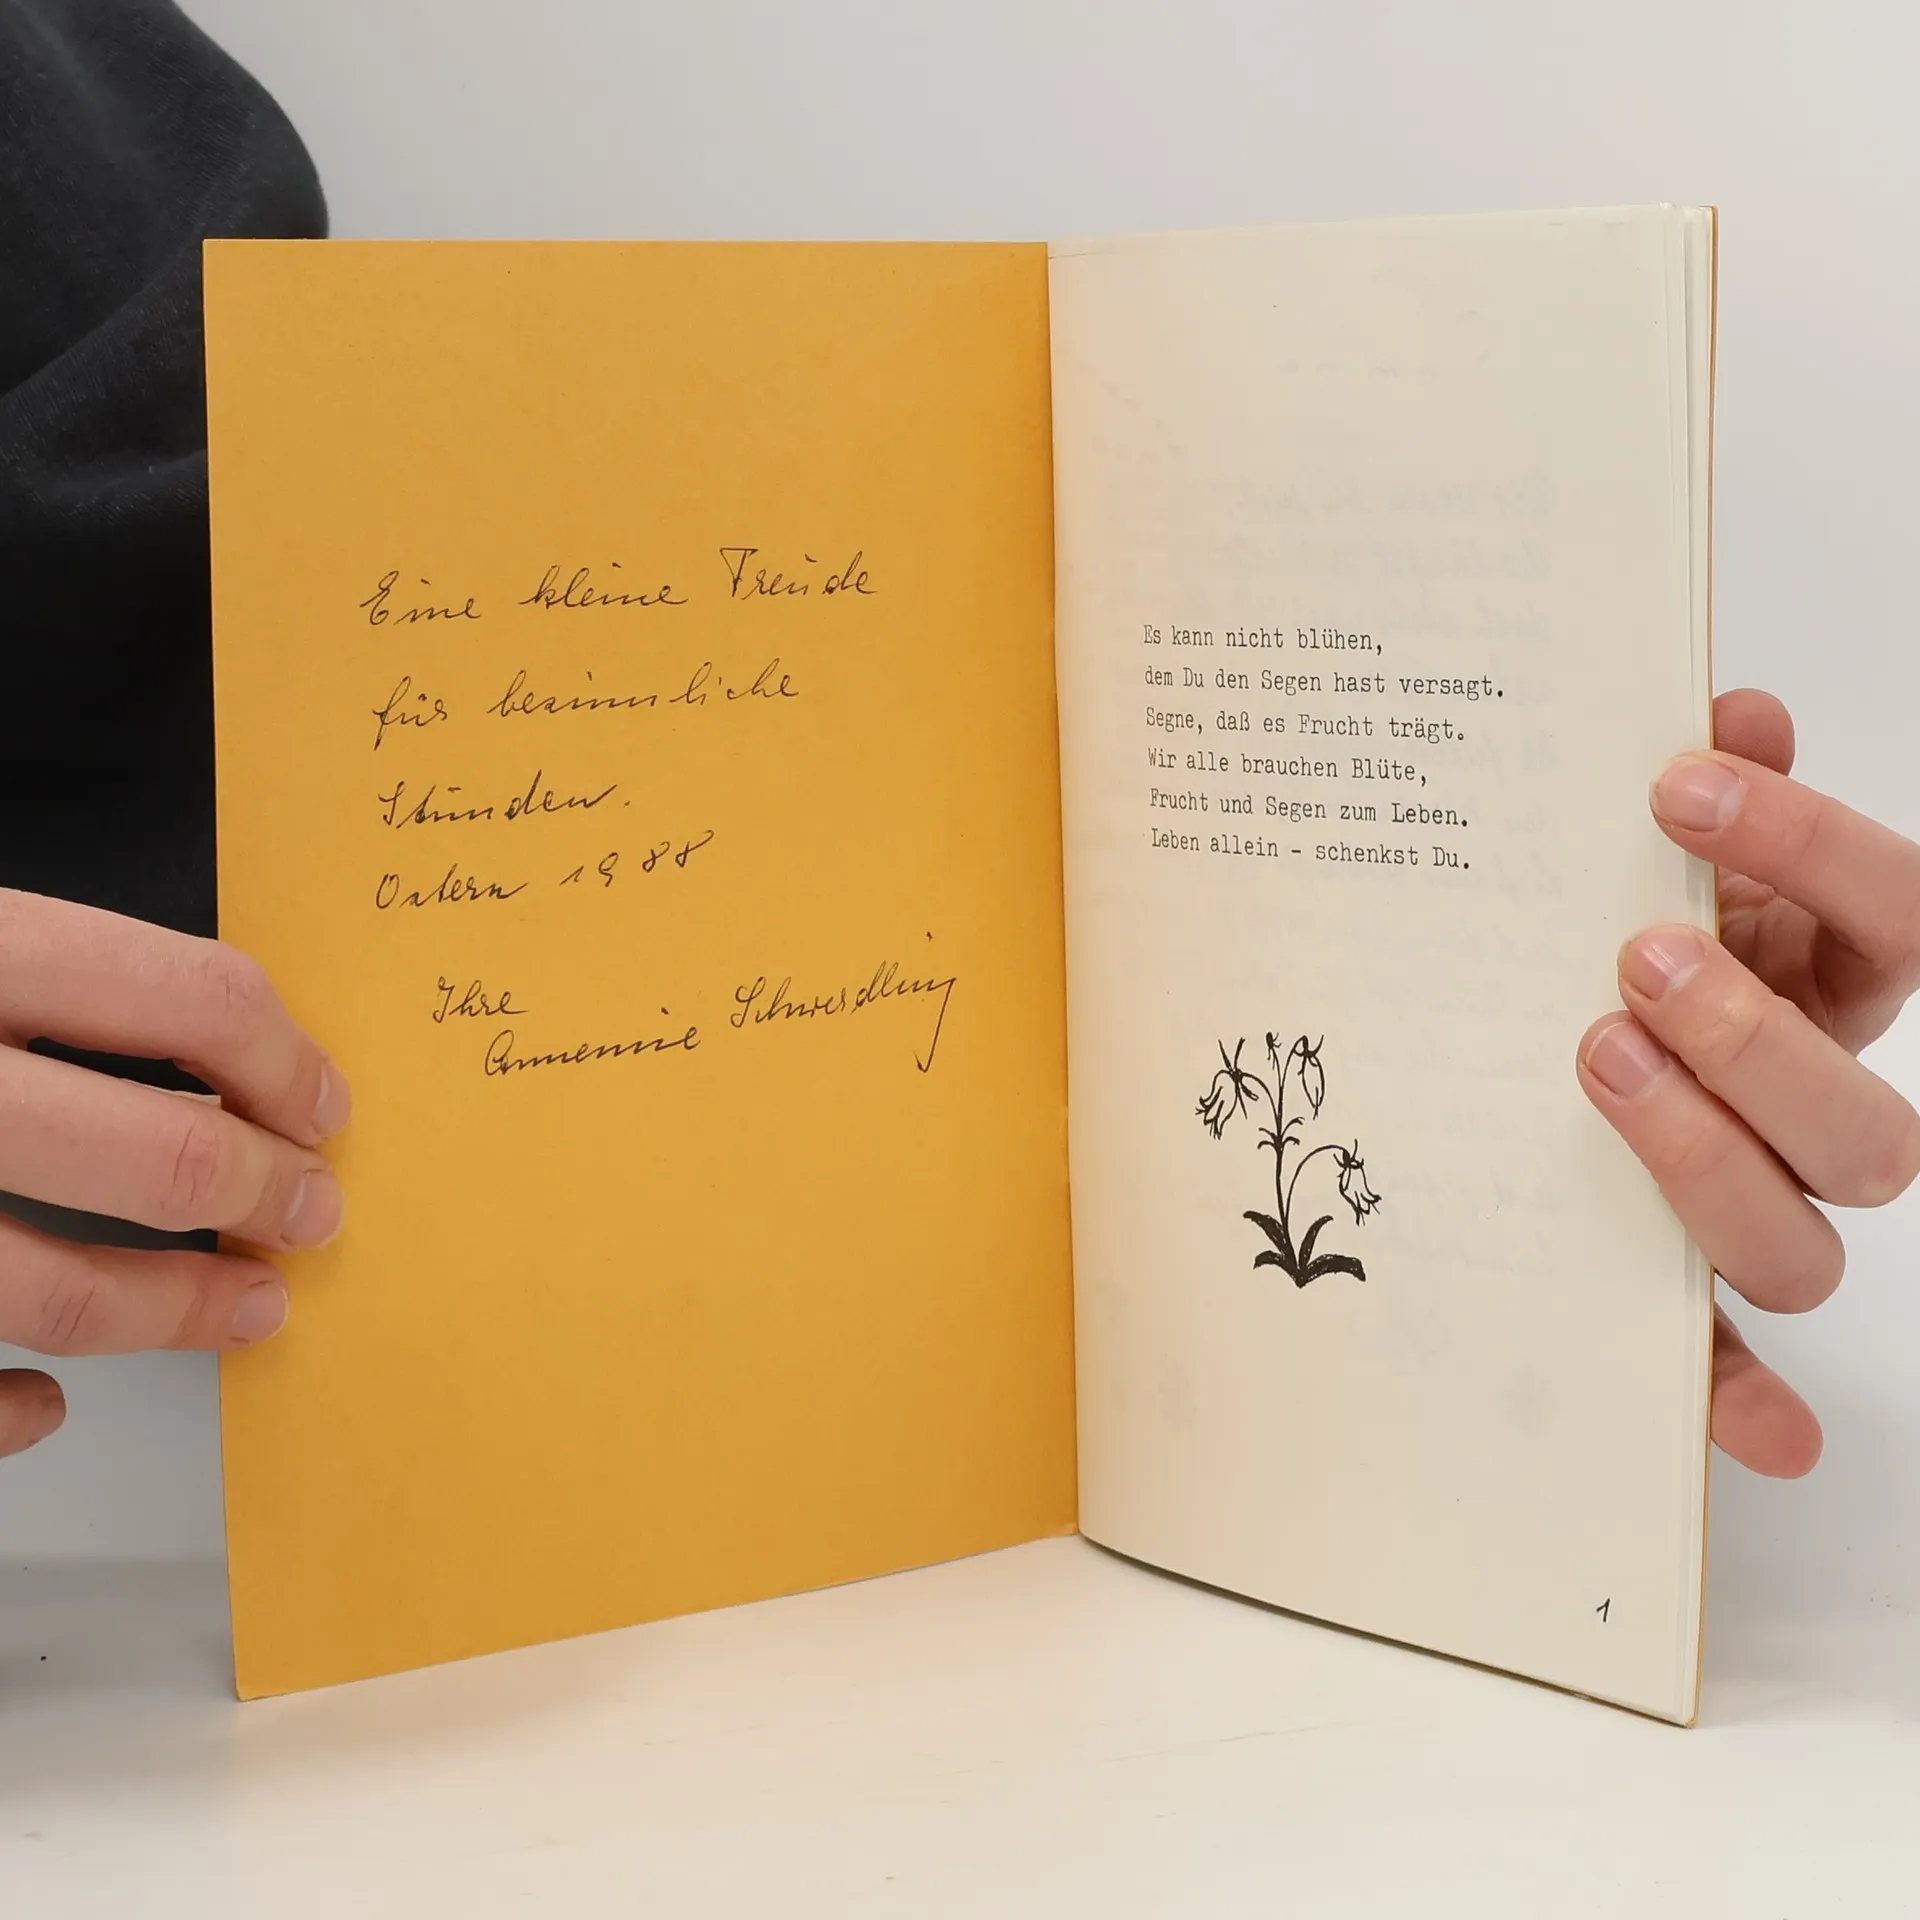 Eine kleine Freude
für besinnliche
Stunden.
Ostern 1988
Ihre
Annemie Schwerdling
Es kann nicht blühen,
dem Du den Segen hast versagt.
Segne, daß es Frucht trägt.
Wir alle brauchen Blüte,
Frucht und Segen zum Leben.
Leben allein - schenkst Du.
1